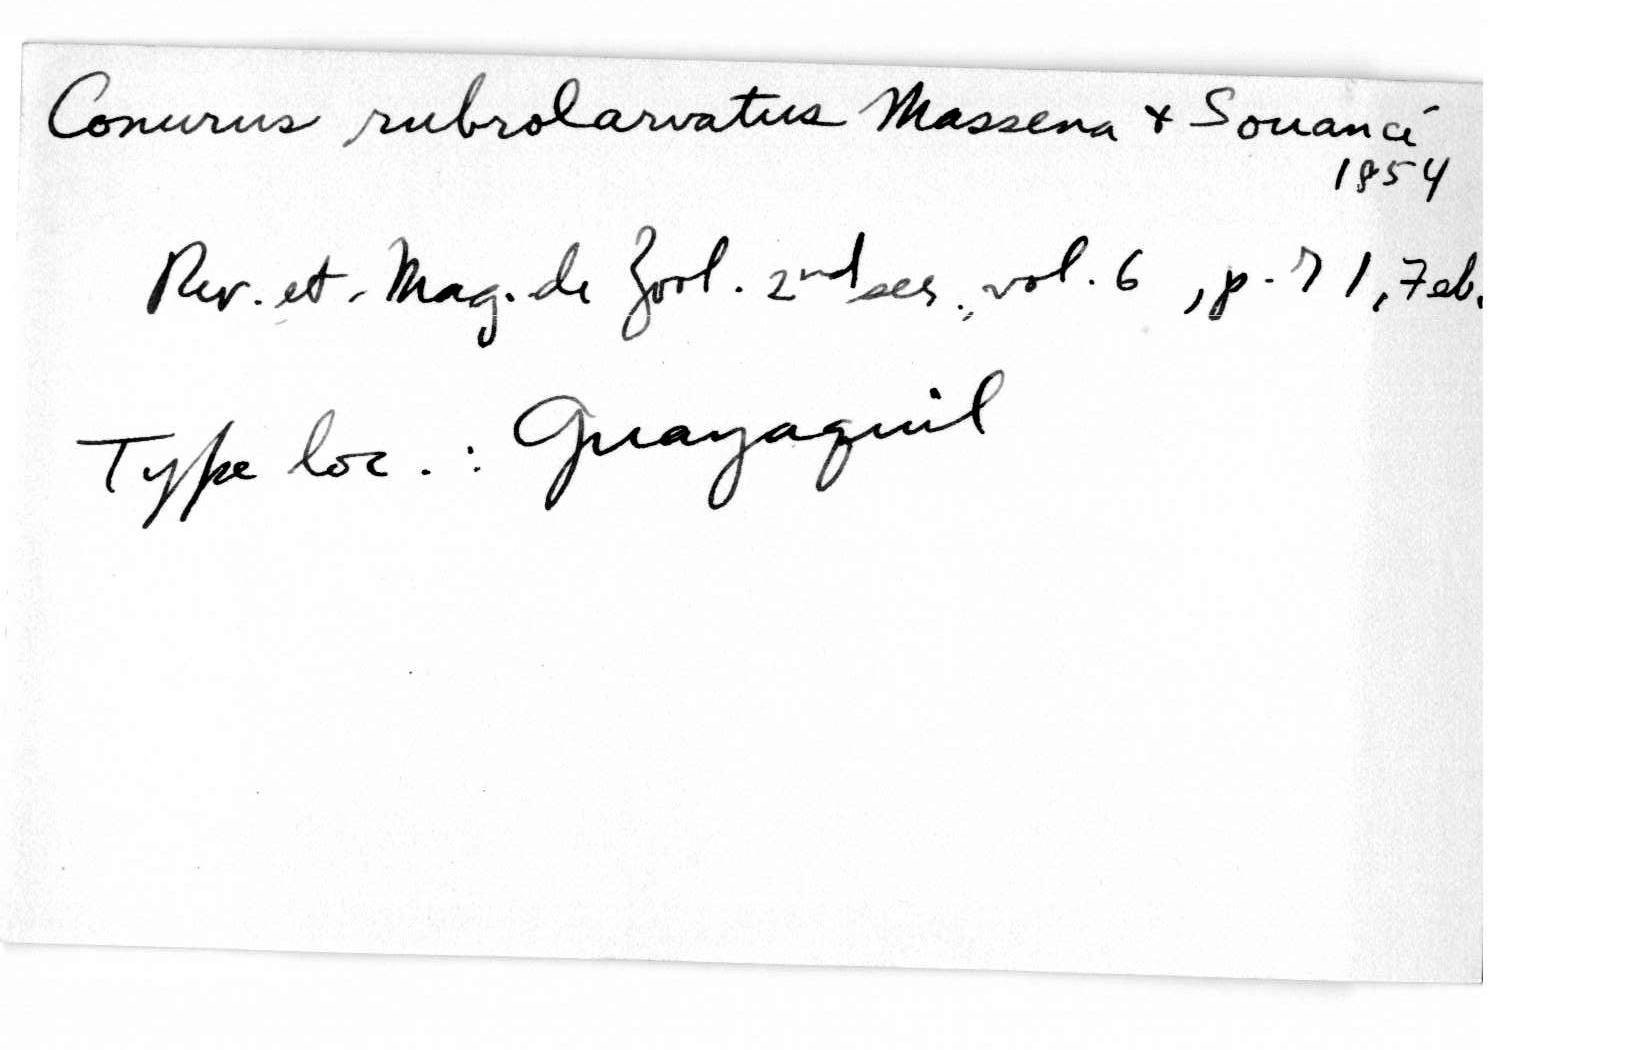 Conurus rubrolarvatus Massena & Souancé
1854
Rev. et. Mag. de Zool. 2nd ser., vol. 6, p. 71, Feb.
Type loc.: Guayaquil